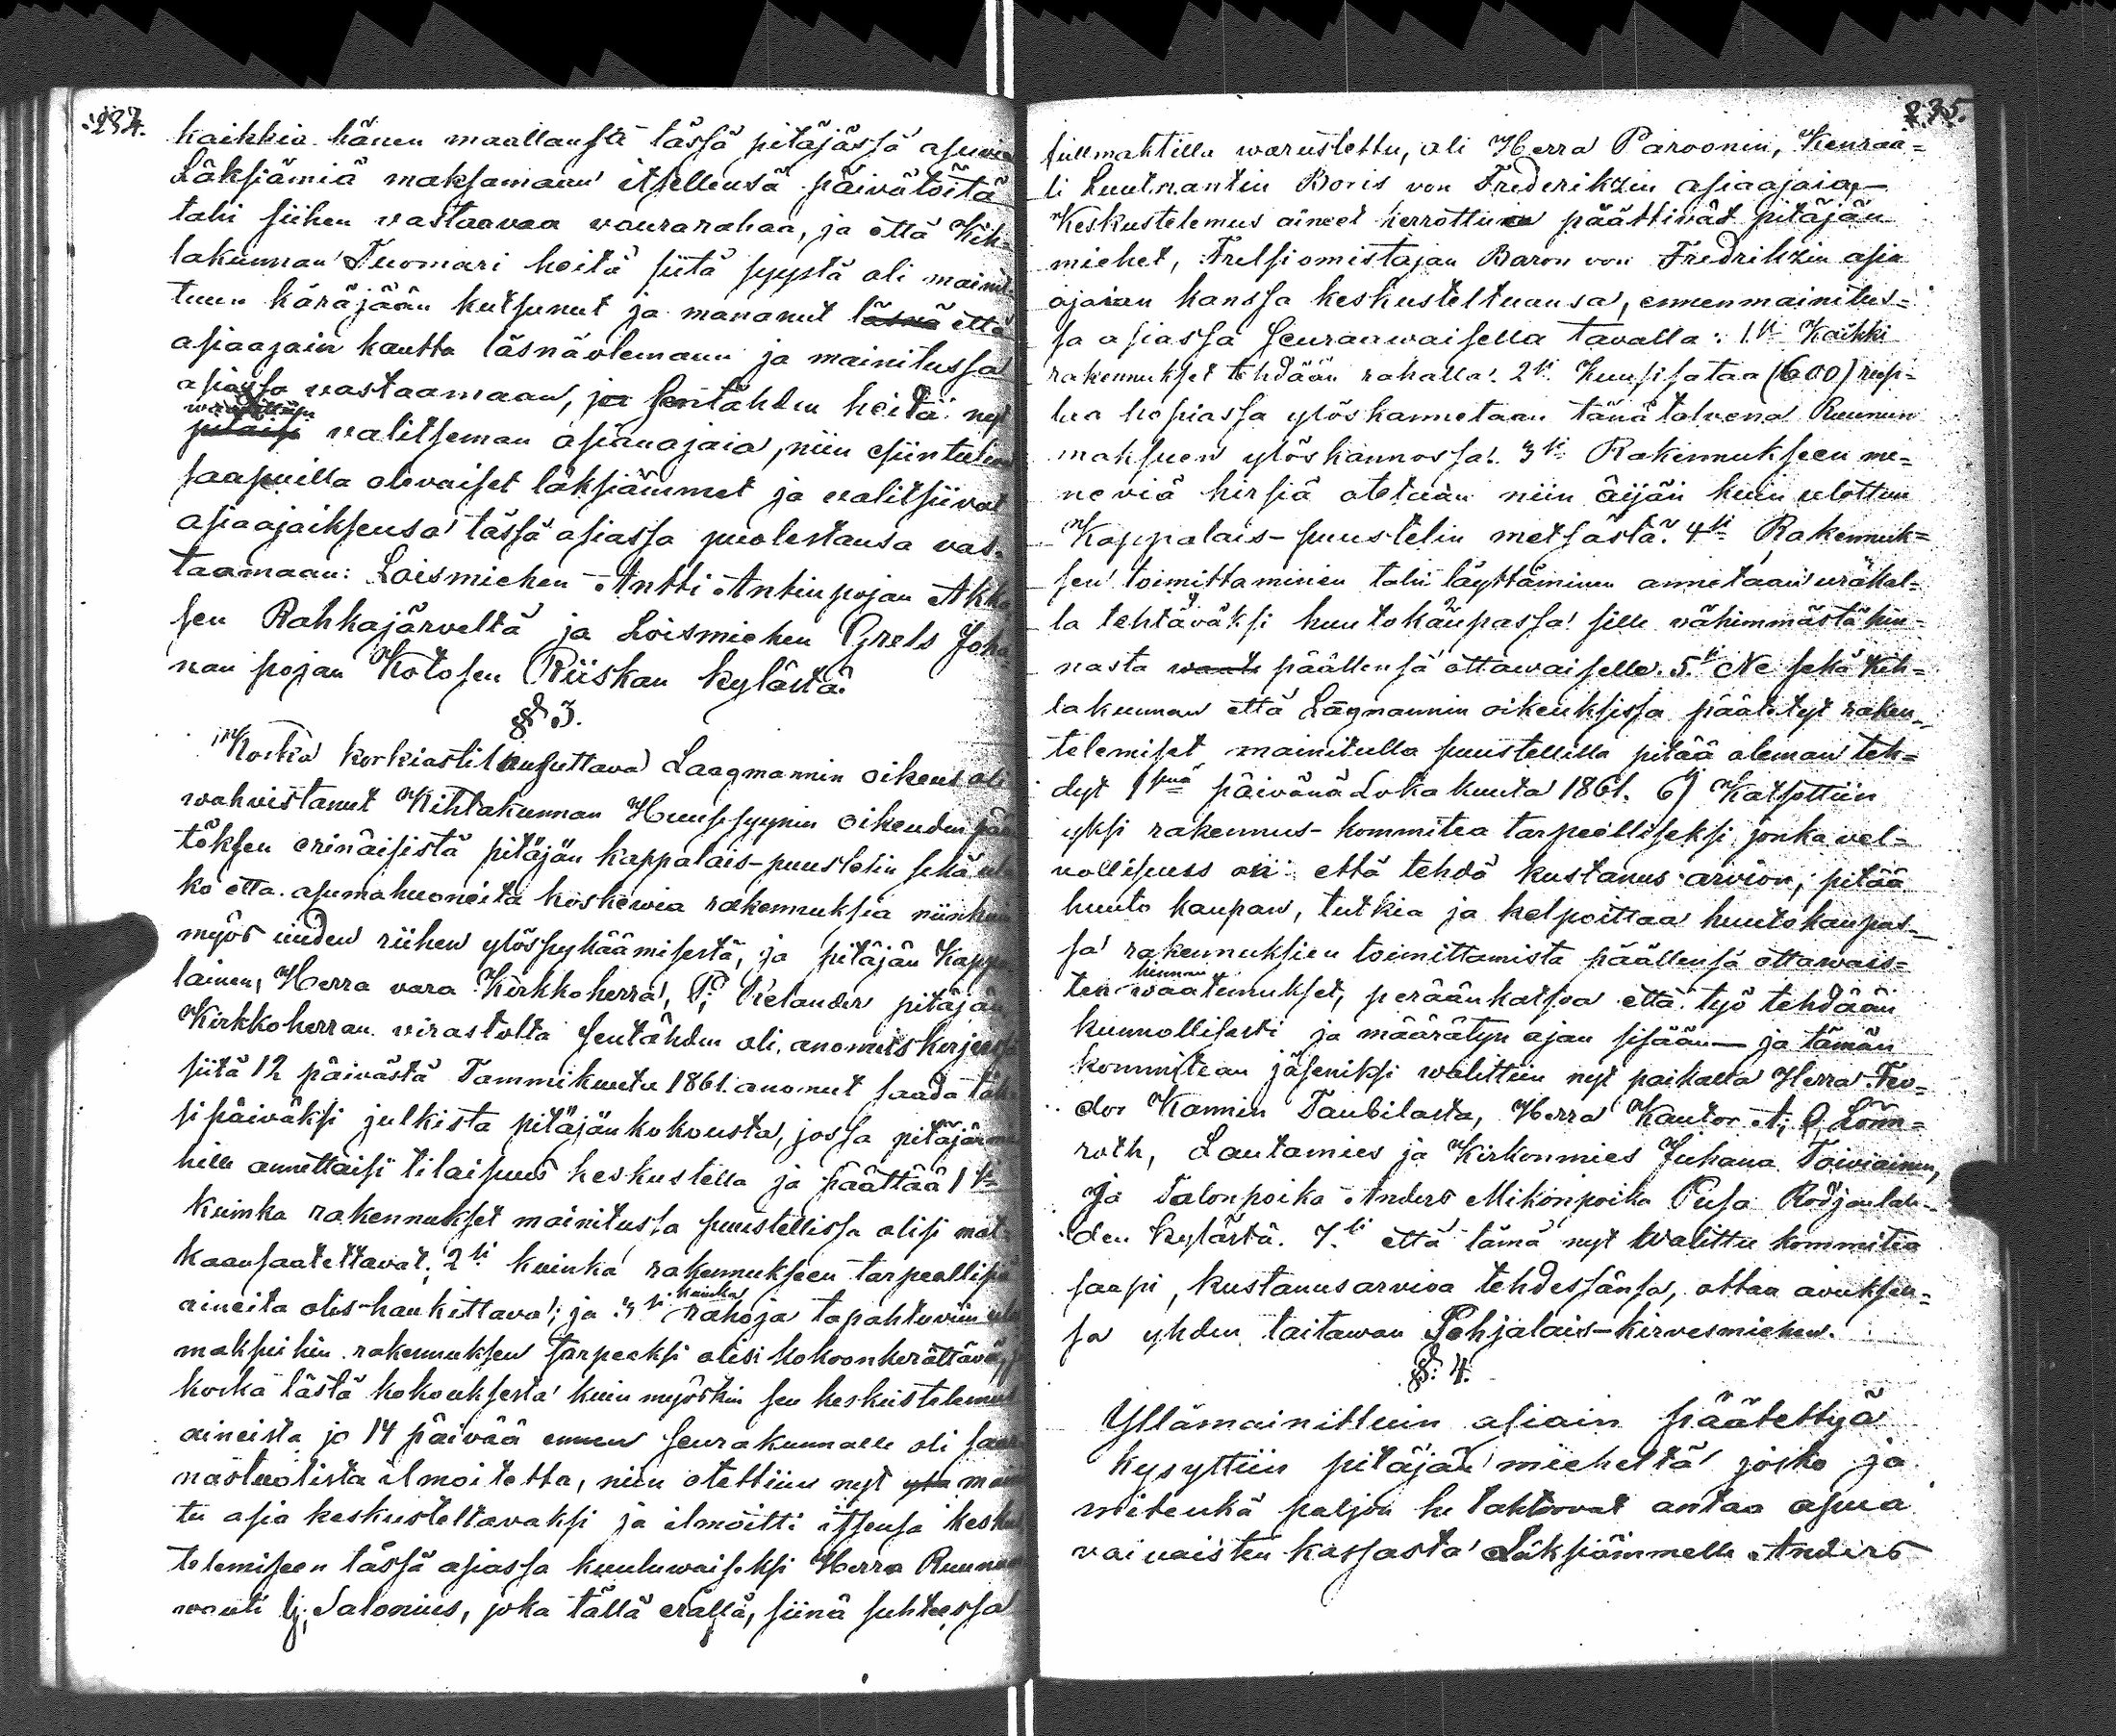 234.
kaikkia hänen maallansa tässä pitäjässä asuvia
Läksiämiä maksamaan itsellensä päivätöitä
tahi siihen vastaavaa vaurarahaa, ja että Kih=
lakunnan Tuomari heitä siitä syystä oli mainit=
tuun käräjään kutsunut ja mananut läsnä että
asiaajain kautta läsnäolemaan ja mainitussa
asiassa vastaamaan, ja sentähden heitä nyt
pitäisi valitseman asianajaia, niin esiintulivat
saapuilla olevaiset läksiämmet ja valitsiivat
asiaajaiksensa tässä asiassa puolestansa vas=
taamaan: Loismiehen Antti Antinpojan Akka
sen Rahkajärveltä ja Loismiehen Grels Joha=
nan pojan Kotosen Riiskan kylästä.
§ 3.
Koska korkiastil kusuttava Laagmannin oikeus oli
wahvistanut Kihlakunnan Huussyynin oikeuden pää
töksen erinäisistä pitäjän kappalais-puustelin sekä ulo
ko että asumahuoneita koskewia rakennuksia niinkuin
myös uuden riihen ylöspykäämisestä, ja pitäjän Kappa
lainen, Herra vara Kirkkoherra, P; Relander pitäjän
Kirkkoherran virastolta sentähden oli anomuskirjeessä
siitä 12 päivästä Tammikuuta 1861 anonut saada täk=
si päiväksi julkista pitäjänkokousta, jossa pitäjänmie
hille annettaisi tilaisuus keskustella ja päättää 1si
kuinka rakennukset mainitussa puustellissa olisi mat=
kaansaatettavat; 2si kuinka rakennukseen tarpeellisia
aineita olis-hankittava; ja 3si kuinka rahoja tapahtuviin ulos
maksuihin rakennuksen tarpeeksi olisi kokoonkerättävä,
koska tästä kokouksesta kuin myöskin sen keskustelemus
aineista jo 14 päivää ennen seurakunnalle oli saar
nastuolista ilmoitettu, niin otettiin nyt yllä maini
tu asia keskusteltavaksi ja ilmoitti itsensä kesku
telemiseen tässä asiassa kuuluwaiseksi Herra Ruunun
wouti G; Salonius, joka tällä erällä, siinä suhteessa
235.
fullmahtilla warustettu, oli Herra Paroonin, Kenraa=
li Luutnantin Boris von Frederikzin asiaajaia,—
Keskustelemus aineet kerrottua päättivät pitäjän
miehet, Frelsiomistajan Baron von Fredrikzin asia
ajaian kanssa keskusteltuansa, ennenmainitus=
sa asiassa seuraawaisella tavalla: 1si Kaikki
rakennukset tehdään rahalla. 2si Kuusisataa (600) rup=
laa hopiassa ylöskannetaan tänä talvena Ruunun
maksuen ylöskannossa. 3si Rakennukseen me=
neviä hirsiä otetaan niin äijän kuin ulottuu
Kappalais-puustelin metsästä. 4si Rakennuk=
sen toimittaminen tahi täyttäminen annetaan urakal=
la tehtäväksi huutokaupassa sille vähimmästä hin=
nasta päällensä ottawaiselle. 5si Ne sekä Kih=
lakunnan että Lagmannin oikeuksissa päätetyt raken=
telemiset mainitulla puustellilla pitää oleman teh=
dyt 1snä päivänä Lokakuuta 1861. 6si Katsottiin
yksi rakennus-kommitea tarpeelliseksi jonka vel=
vollisuus on että tehdä kustanus arvion, pitää
huuto kaupan, tutkia ja kelpoittaa huutokaupas=
sa rakennuksien toimittamista päällensä ottawais=
ten hinnan waatimukset, peräänkatsoa että työ tehdään
kunnollisesti ja määrätyn ajan sisään— ja tämän
kommitean jäseniksi walittiin nyt paikalla Herra Feo=
dor Kamin Taubilasta, Herra Kantor A; G Lönn=
roth, Lautamies ja Kirkonmies Juhana Toiviainen,
Ja Talonpoika Anders Mikonpoika Pusa Rodjonlah=
den kylästä. 7si että tämä nyt Walittu kommitea
saapi, kustanusarvioa tehdessänsä, ottaa avuksen=
sa yhden taitawan Pohjalais-kirvesmiehen.
§: 4.
Yllämainittuin asiain päätettyä
kysyttiin pitäjän mieheltä josko ja
mitenkä paljon he tahtovat antaa apua
vaivaisten kassasta Läksiämmelle Anders